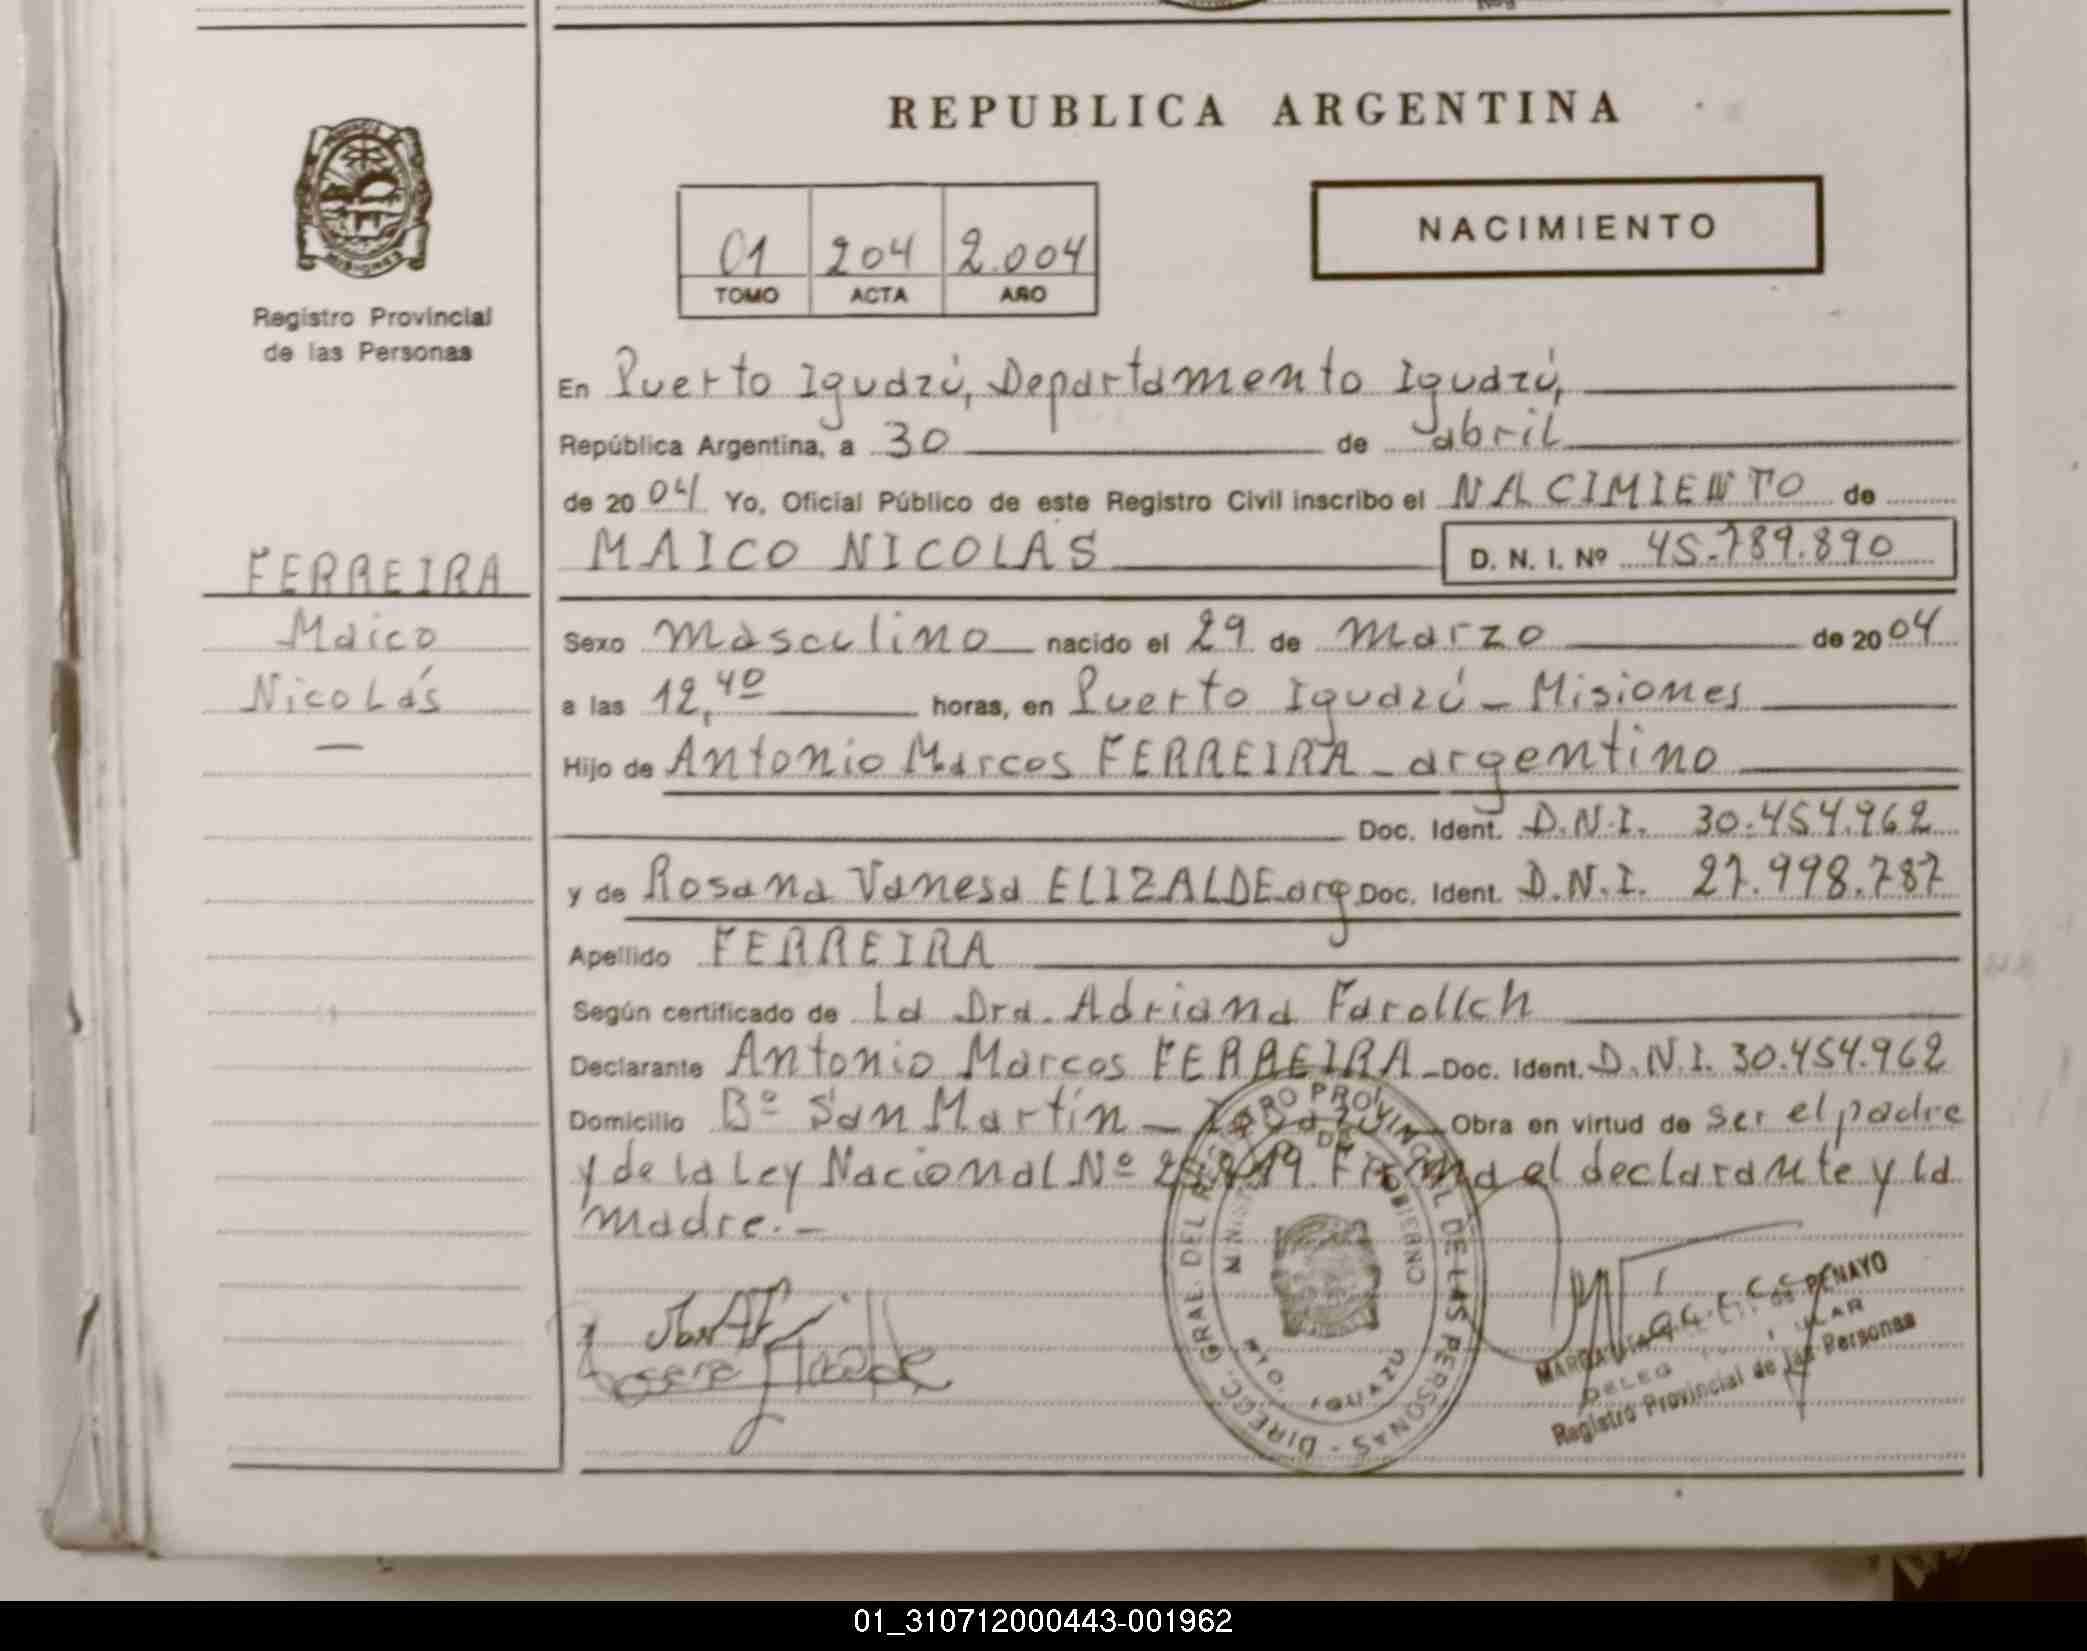 REPUBLICA ARGENTINA
MISIONES
Registro Provincial
de las Personas
01 204 2.004
TOMO ACTA AÑO
NACIMIENTO
En Puerto Iguazú, Departamento Iguazú,
República Argentina, a 30 de abril
de 2004 Yo, Oficial Público de este Registro Civil inscribo el NACIMIENTO de
MAICO NICOLAS D. N. I. Nº 45.789.890
FERREIRA
Maico
Nicolás
Sexo masculino nacido el 29 de marzo de 2004
a las 12,40 horas, en Puerto Iguazú - Misiones
Hijo de Antonio Marcos FERREIRA - argentino
Doc. Ident. D.N.I. 30.454.962
y de Rosana Vanesa ELIZALDE-arg Doc. Ident. D.N.I. 27.998.787
Apellido FERREIRA
Según certificado de La Dra. Adriana
Declarante Antonio Marcos FERREIRA - Doc. Ident. D.N.I. 30.454.962
Domicilio Bº San Martín - Obra en virtud de ser el padre
y de la Ley Nacional Nº Firma el declarante y la
madre.-
DIRECC. GRAL. DEL REGISTRO PROVINCIAL DE LAS PERSONAS -
DE PENAYO
Registro Provincial de las Personas
01_310712000443-001962